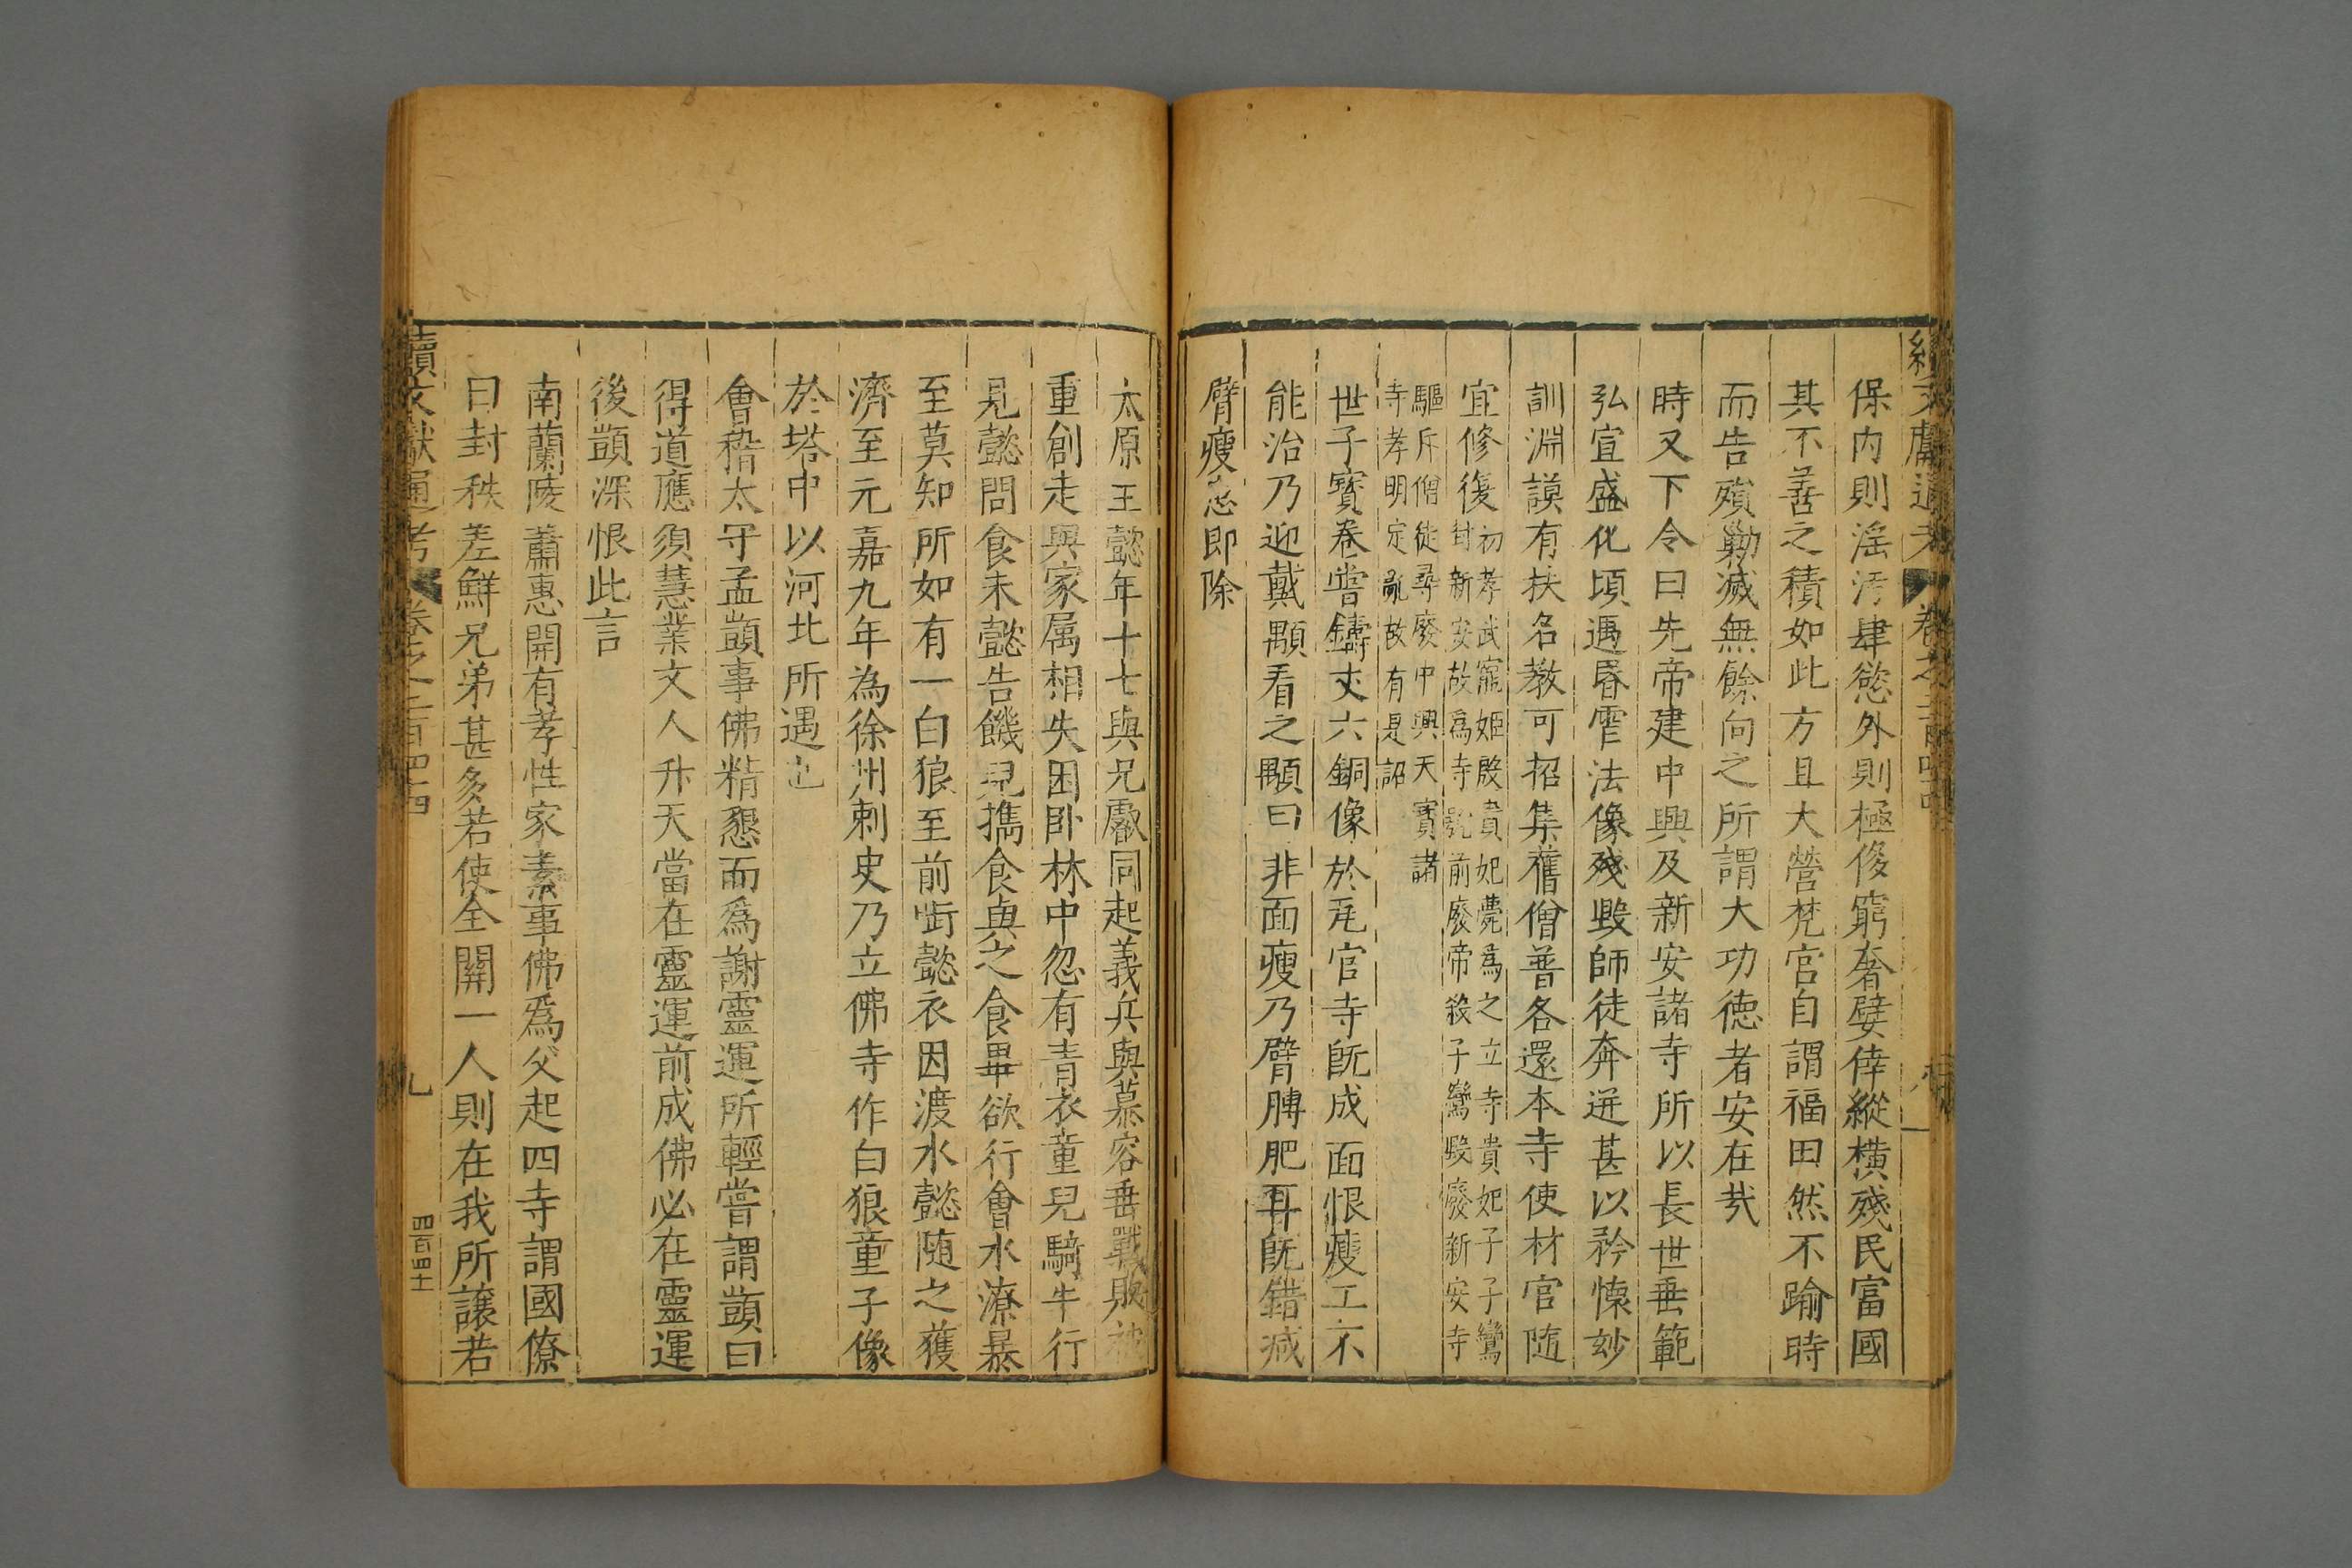 續文獻通考 卷之二百四十四 八
保内則滛汚肆慾外則極俊窮奢嬖倖縱橫殘民富國
其不善之積如此方且大營梵宫自謂福田然不踰時
而告殞勦滅無餘向之所謂大功德者安在㦲
時又下令曰先帝建中興及新安諸寺所以長世垂範
弘宣盛化頃遇昏虐法像殘毁師徒奔迸甚以矜懷妙
訓淵謨有扶名教可招集舊僧普各還本寺使材官隨
宜修復初孝武寵姬殷貴妃薨爲之立寺貴妃子子鸞
封新安故爲寺號前廢帝殺子鸞毁廢新安寺
驅斥僧徒尋廢中興天寶諸
寺孝明定亂故有是詔
世子寳卷嘗鑄丈六銅像於瓦官寺既成面恨瘦工不
能治乃迎戴顒看之顒曰非面瘦乃臂胛肥耳既錯减
臂瘦恙即除
太原王懿年十七與兄叡同起義兵與慕容垂戰敗被
重創走與家属相失困卧林中忽有青衣童兒騎牛行
見懿問食未懿告饑兒携食與之食畢欲行會水潦暴
至莫知所如有一白狼至前啣懿衣因渡水懿随之獲
濟至元嘉九年為徐州刺史乃立佛寺作白狼童子像
於塔中以河北所遇也
會稽太守孟顗事佛精懇而爲謝靈運所輕嘗謂顗曰
得道應須慧業文人升天當在靈運前成佛必在靈運
後顗深恨此言
南蘭陵蕭惠開有孝性家素事佛爲父起四寺謂國僚
曰封秩差鮮兄弟甚多若使全關一人則在我所讓若
續文獻通考 卷之二百四十四 九 四百四十